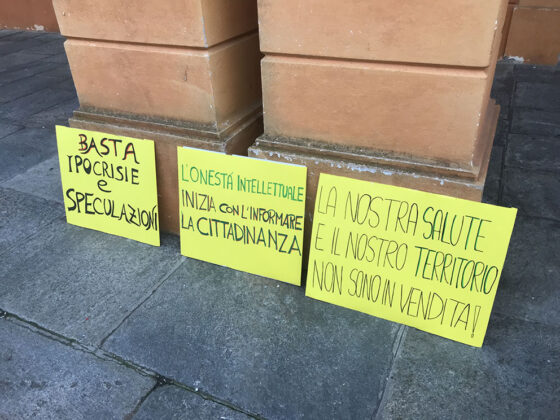 BASTA
IPOCRISIE
e
SPECULAZIONI
L'ONESTÁ INTELLETTUALE
INIZIA CON L'INFORMARE
LA CITTADINANZA
LA NOSTRA SALUTE
E IL NOSTRO TERRITORIO
NON SONO IN VENDITA!